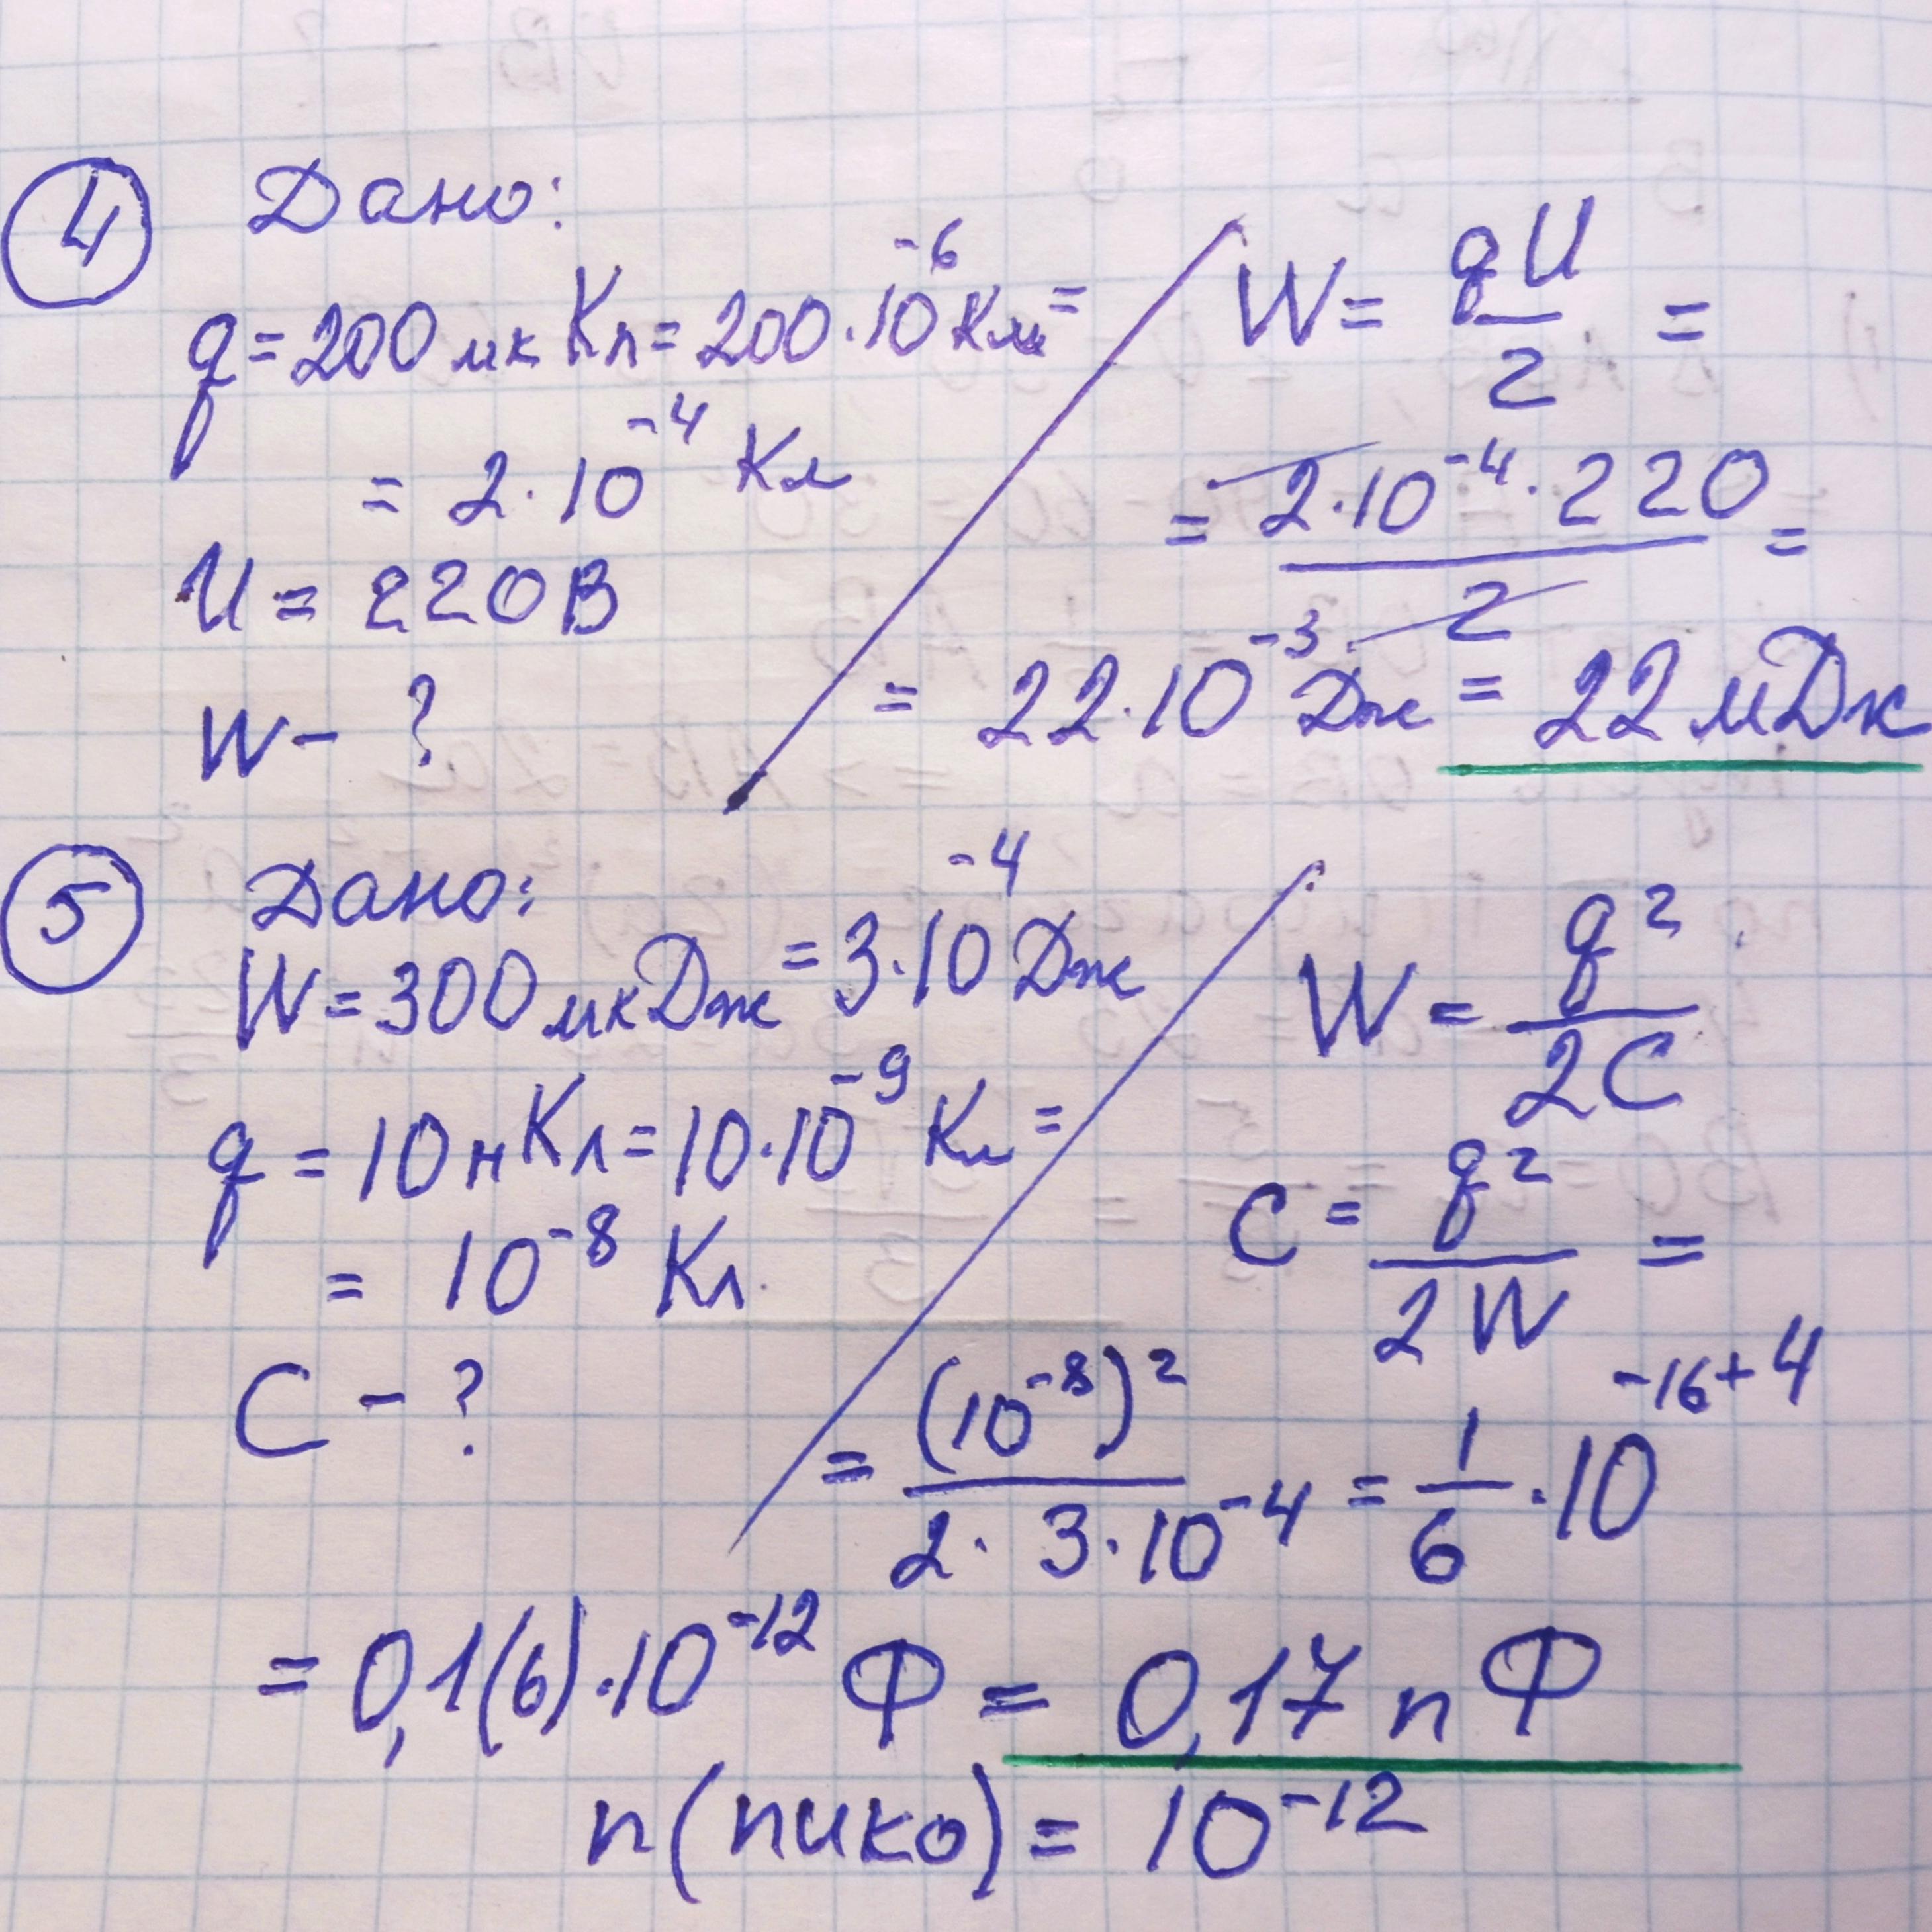 4 Дано:
q = 200 мкКл = 200·10⁻⁶ Кл =
= 2·10⁻⁴ Кл
U = 220 В
W – ?
W = qU/2 =
= 2·10⁻⁴·220/2 =
= 22·10⁻³ Дж = 22 мДж
5 Дано:
W = 300 мкДж = 3·10⁻⁴ Дж
q = 10 нКл = 10·10⁻⁹ Кл =
= 10⁻⁸ Кл
C – ?
W = q²/2C
C = q²/2W =
= (10⁻⁸)²/2·3·10⁻⁴ = 1/6·10⁻¹⁶⁺⁴
= 0,1(6)·10⁻¹² Ф = 0,17 пФ
п(пико) = 10⁻¹²